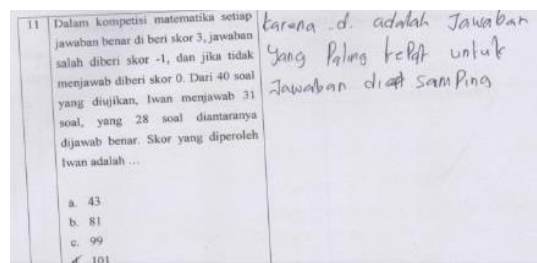 11 Dalam kompetisi matematika setiap
jawaban benar di beri skor 3, jawaban
salah diberi skor -1, dan jika tidak
menjawab diberi skor 0. Dari 40 soal
yang diujikan, Iwan menjawab 31
soal, yang 28 soal diantaranya
dijawab benar. Skor yang diperoleh
Iwan adalah ...
a. 43
b. 81
c. 99
101
karena .d. adalah Jawaban
Yang Paling tepat untuk
Jawaban di samping